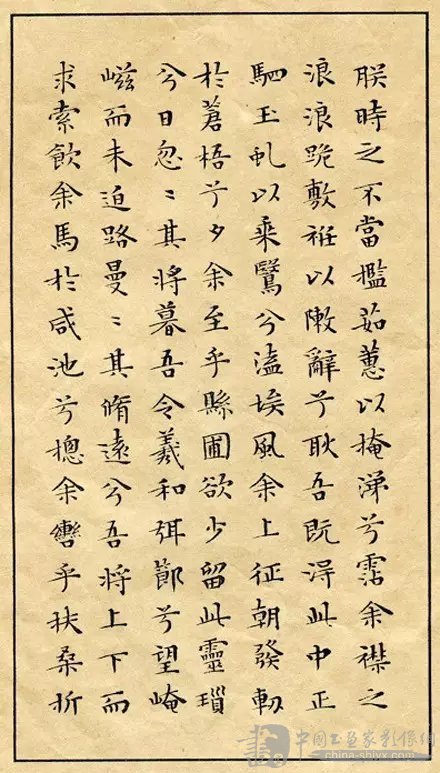 朕時之不當㩜茹蕙以掩涕兮霑余襟之
浪浪跪敷衽以敶辭兮耿吾既淂此中正
駟玉虬以乘鷖兮溘埃風余上征朝發軔
於蒼梧兮夕余至乎縣圃欲少留此靈瑣
兮日忽〻其將暮吾令羲和弭節兮望崦
嵫而未迫路曼〻其脩遠兮吾將上下而
求索飲余馬於咸池兮摠余轡乎扶桑折
中国书画家影像网